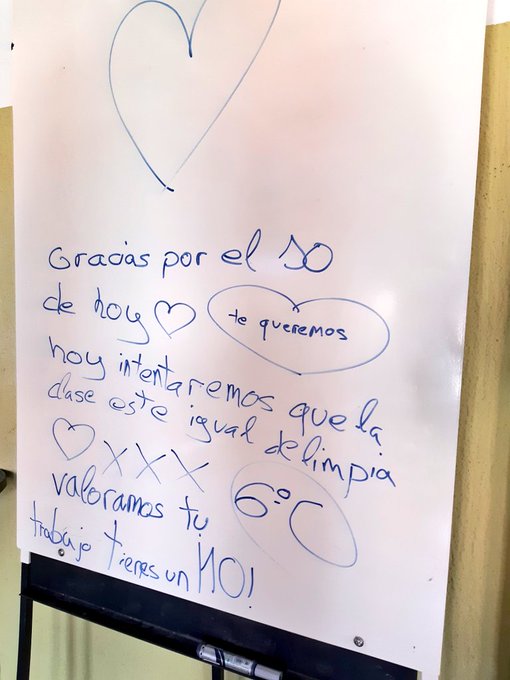 Gracias por el 10
de hoy ♡ te queremos
hoy intentaremos que la
clase este igual de limpia
♡ X X X
valoramos tu 6ºC
trabajo tienes un 10!